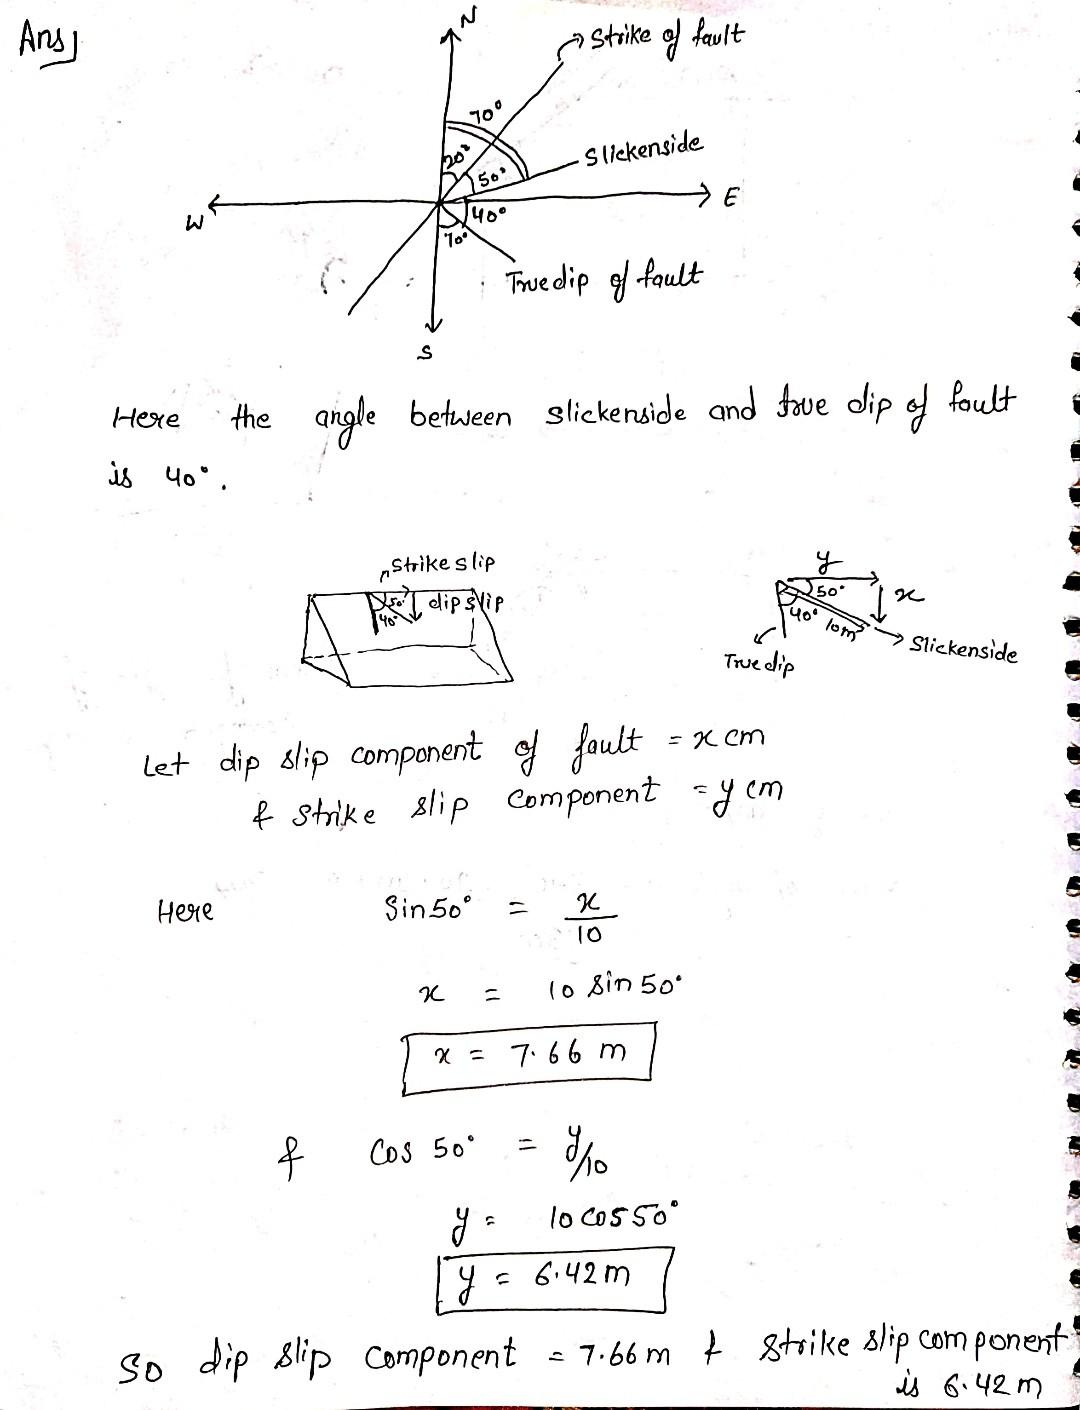 Ans]
N
Strike of fault
70°
20°
Slickenside
50°
W
E
40°
70°
True dip of fault
S
Here the angle between slickenside and true dip of fault
is 40°.
Strike slip
50° dip slip
40°
y
50°
x
40° 10m
Slickenside
True dip
Let dip slip component of fault = x cm
& strike slip component = y cm
Here Sin50° = x/10
x = 10 sin 50°
x = 7.66 m
& Cos 50° = y/10
y = 10 cos 50°
y = 6.42 m
So dip slip component = 7.66 m & strike slip component
is 6.42 m